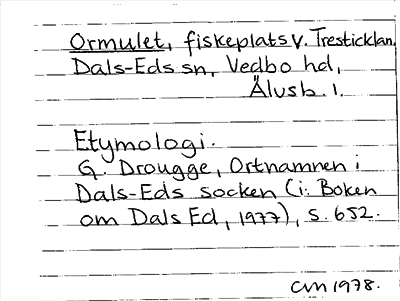 Ormulet, fiskeplats v. Tresticklan,
Dals-Eds sn, Vedbo hd,
Älvsb. l.
Etymologi.
G. Drougge, Ortnamnen i
Dals-Eds socken (i: Boken
om Dals Ed, 1977), s. 652.
CM 1978.